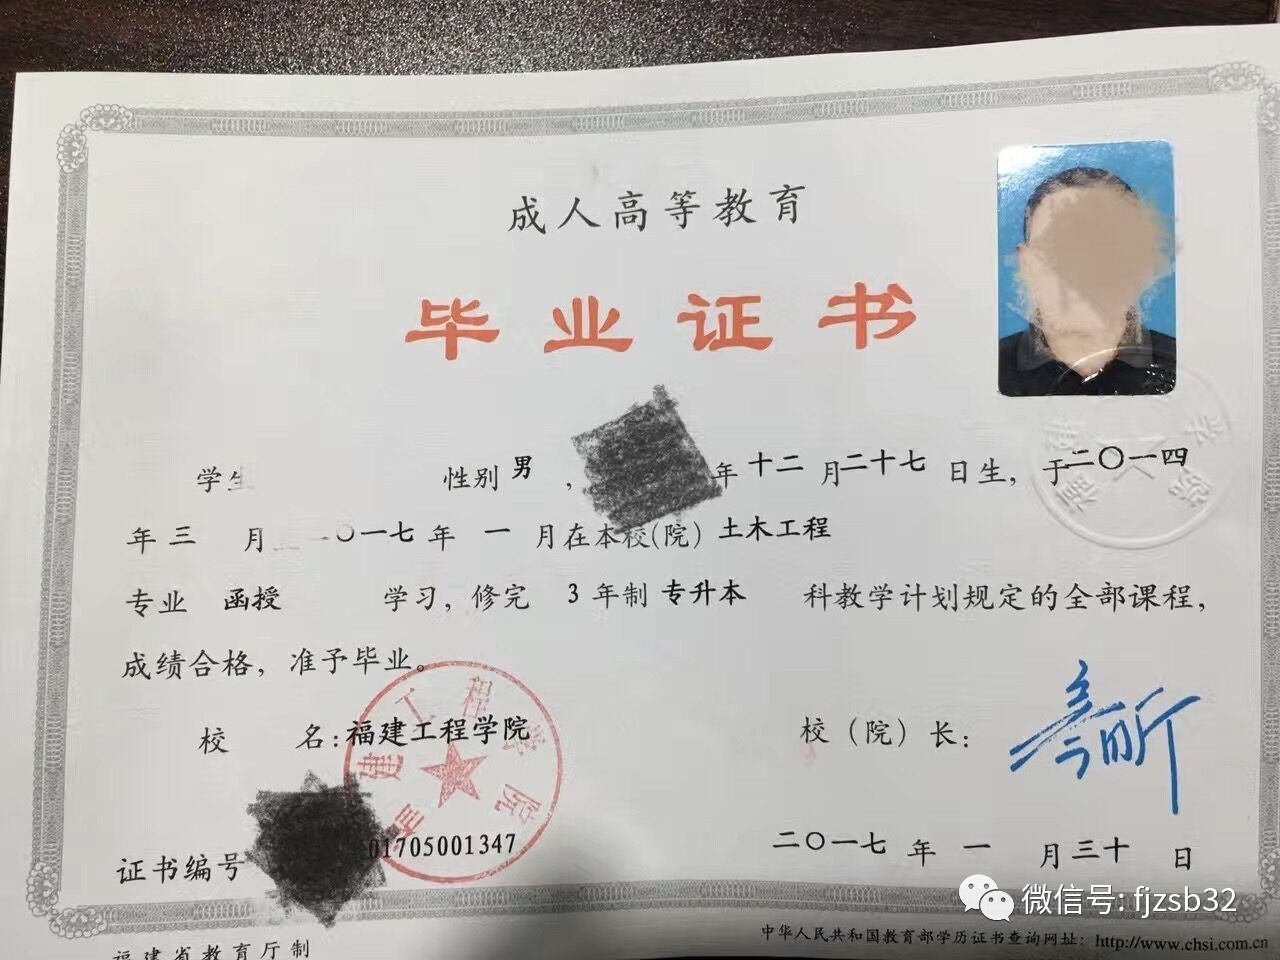 成人高等教育
毕业证书
学生 性别 男 , 年 十二 月 二十七 日生, 于 二〇一四
年 三 月 〇一七 年 一 月在本校(院) 土木工程
专业 函授 学习, 修完 3 年制 专升本 科教学计划规定的全部课程,
成绩合格, 准予毕业。
校 名: 福建工程学院
校 (院) 长:
证书编号 01705001347
二〇一七 年 一 月 三十 日
微信号: fjzsb32
福建省教育厅制
中华人民共和国教育部学历证书查询网址: http://www.chsi.com.cn